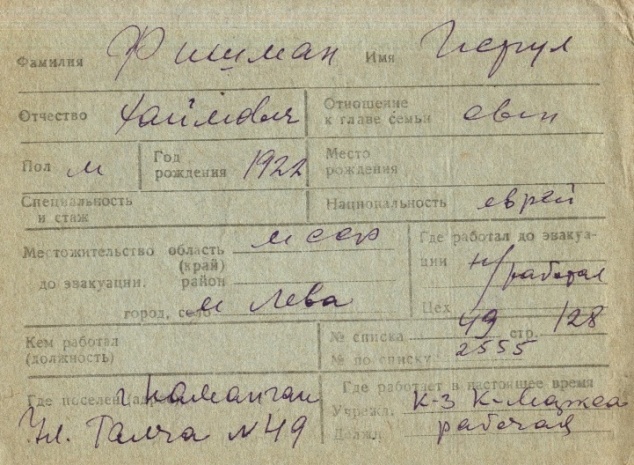 Фамилия Фишман Имя Исрул
Отчество Хаймович Отношение к главе семьи сын
Пол м Год рождения 1922 Место рождения
Специальность и стаж Национальность еврей
Местожительство область мсср Где работал до эвакуа-
(край) ции н/работал
до эвакуации. район
город, село м Лева Цех
№ списка 49 стр. 128
Кем работал (должность) № по списку 2555
Где поселен (адрес) г Наманган Где работает в настоящее время
Ул. №49 Учрежд. к-з
Должн. рабочая